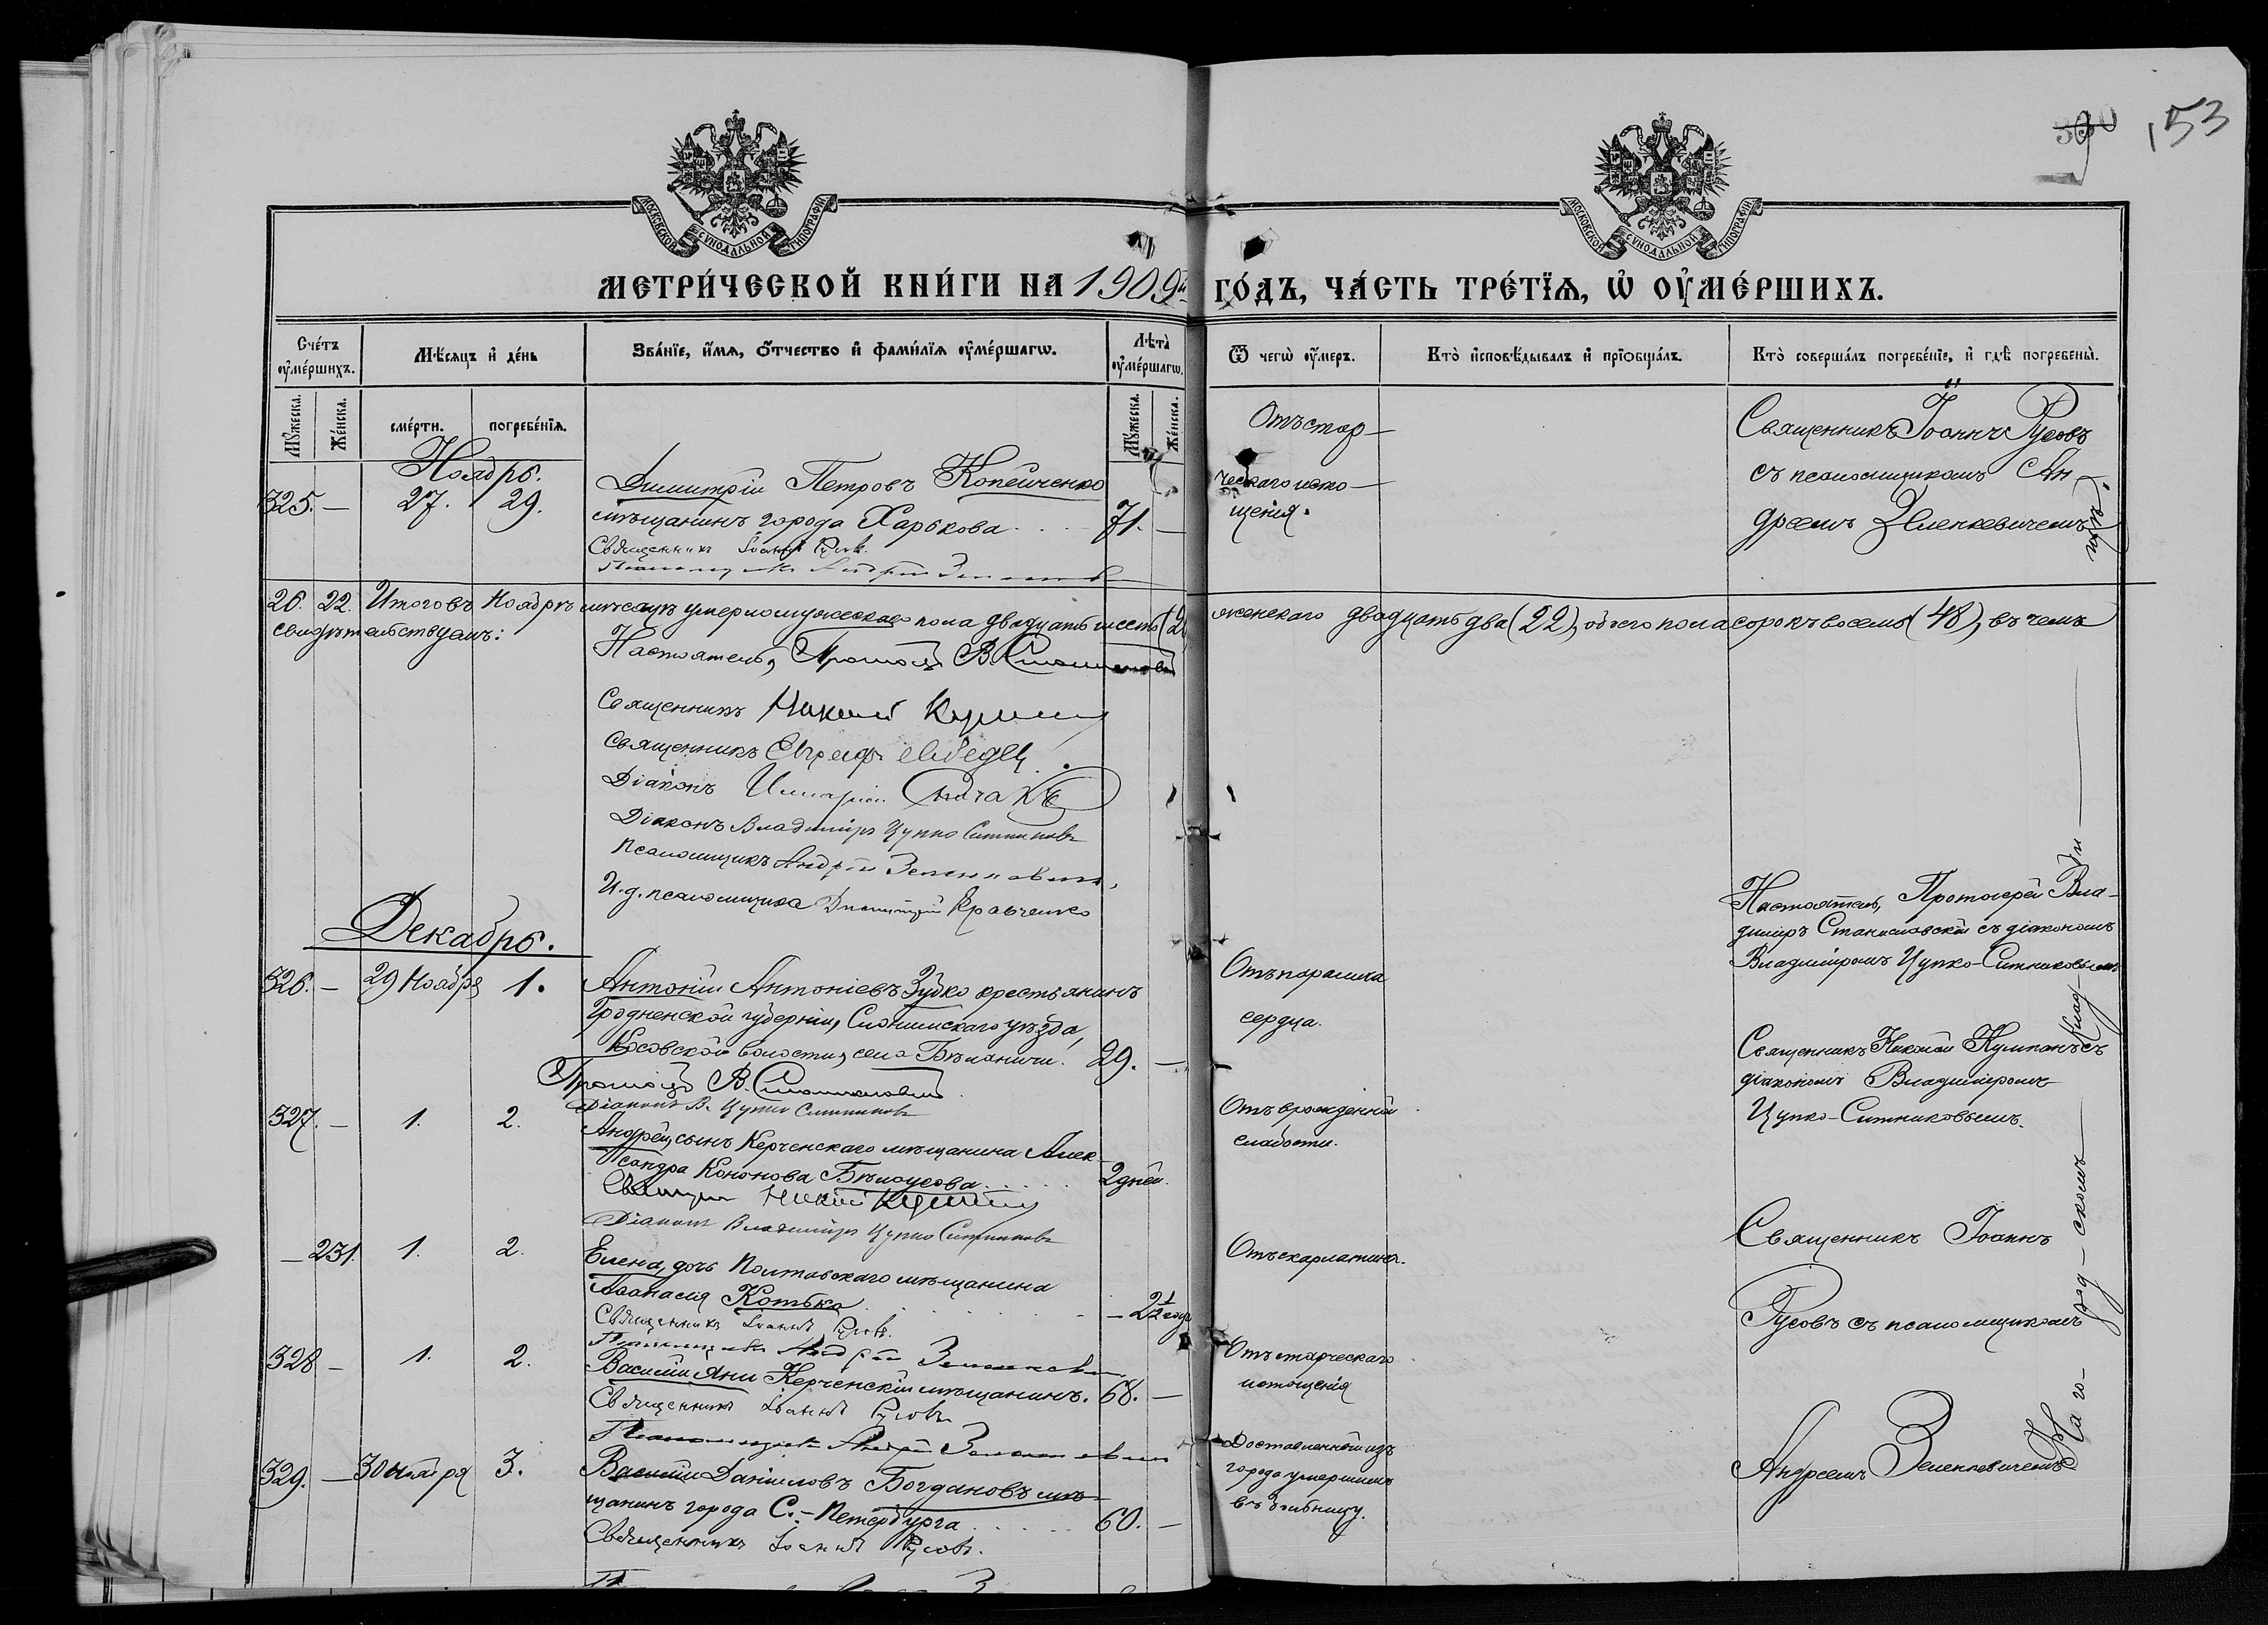 330 153
МОСКОВСКОЙ СѴНОДАЛЬНОЙ ТИПОГРАФІИ
МОСКОВСКОЙ СѴНОДАЛЬНОЙ ТИПОГРАФІИ
МЕТРИ́ЧЕСКОЙ КНИ́ГИ НА 1909й ГО́ДЪ, ЧА́СТЬ ТРЕ́ТЇѦ, Ѡ҆ ОУ҆МЕ́РШИХЪ.
Сче́тъ оу҆ме́ршихъ.
Мѣ́сѧцъ и҆ де́нь
Зва́нїе, и҆́мѧ, ѻ҆́тчество и҆ фами́лїѧ оу҆ме́ршагѡ.
Лѣ́та̀ оу҆ме́ршагѡ.
Ѿ чегѡ̀ оу҆́меръ.
Кто̀ и҆сповѣ́дывалъ и҆ прїѻбща́лъ.
Кто̀ соверша́лъ погребе́нїе, и҆ гдѣ̀ погребены̀.
Мꙋ́жеска.
Же́нска.
сме́рти.
погребе́нїѧ.
Мꙋ́жеска.
Же́нска.
Ноябрь.
325. — 27. 29. Димитрій Петровъ Копейченко
мѣщанинъ города Харькова 71. —
Священникъ Іоаннъ Русовъ.
Псаломщикъ Андрей Зеленкевичъ
Отъ стар-
ческаго исто-
щенія.
Священникъ Іоаннъ Русовъ
съ псаломщикомъ Ан-
дреемъ Зеленкевичемъ
26. 22. Итого въ Ноябрѣ мѣсяцѣ умерло мужескаго пола двадцать шесть (26 женскаго двадцать два (22), обоего пола сорокъ восемь (48), въ чемъ
свидѣтельствуемъ:
Настоятель, Протоіер. В. Станиславскій
Священникъ Николай Кумпанъ
Священникъ
Діаконъ
Діаконъ Владиміръ Цупко Ситниковъ
Псаломщикъ Андрей Зеленкевичъ
И. д. псаломщика Димитрій Кравченко
Декабрь.
326. — 29 Ноября 1. Антоній Антоніевъ Зубко крестьянинъ
Гродненской губерніи, Слонимскаго уѣзда,
Косовской волости, села Бѣлавичи. 29. —
Протоіер. В. Станиславскій
Діаконъ В. Цупко Ситниковъ
Отъ паралича
сердца.
Настоятель, Протоіерей Вла-
диміръ Станиславскій съ діакономъ
Владиміромъ Цупко-Ситниковымъ
327. — 1. 2. Андрей, сынъ Керченскаго мѣщанина Алек-
сандра Кононова Бѣлоусова 2 дней.
Священникъ Николай Кумпанъ
Діаконъ Владиміръ Цупко Ситниковъ
Отъ врожденной
слабости.
Священникъ Николай Кумпанъ съ
діакономъ Владиміромъ
Цупко-Ситниковымъ.
— 231. 1. 2. Елена, дочь Полтавскаго мѣщанина
Аѳанасія Котька — 2½ года
Священникъ Іоаннъ Русовъ.
Псаломщикъ Андрей Зеленкевичъ
Отъ скарлатины.
Священникъ Іоаннъ
Русовъ съ псаломщикомъ
328 — 1. 2. Василій Яни Керченскій мѣщанинъ. 68. —
Священникъ Іоаннъ Русовъ
Псаломщикъ Андрей Зеленкевичъ
Отъ старческаго
истощенія
Андреемъ Зеленкевичемъ
329. — 30 Ноября 3. Василій Даніиловъ Богдановъ мѣ-
щанинъ города С.-Петербурга 60. —
Священникъ Іоаннъ Русовъ.
Доставленный изъ
города умершимъ
въ больницу.
На го-
род-
скомъ
клад-